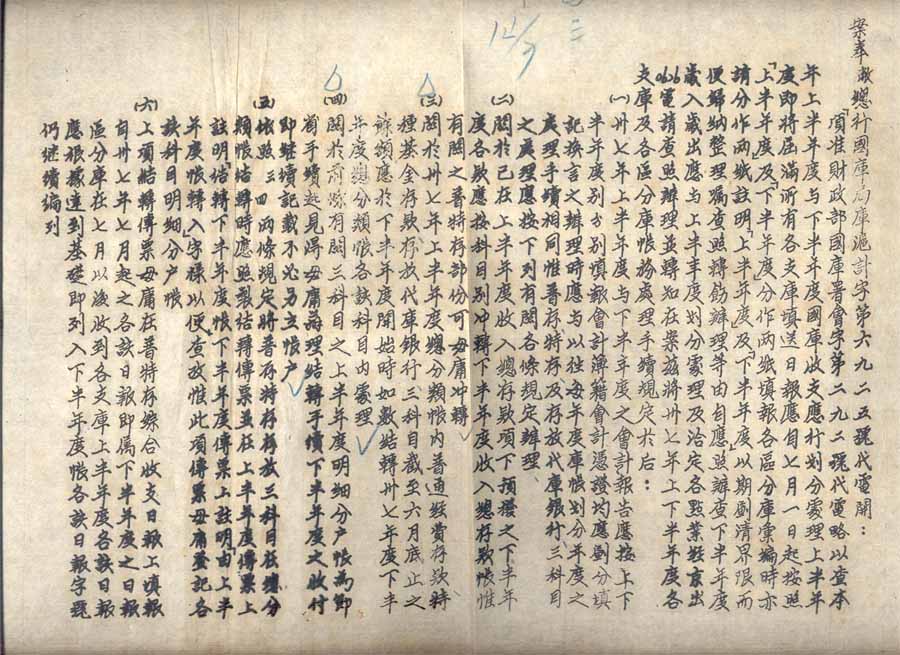 案奉敝總行國庫局庫滬計字第六九二五號代電開：
「項准財政部國庫署會字第二九二號代電略以查本
年上半年度與下半年度國庫收支應行划分處理上半年
度即將屆滿所有各支庫填送日報應自七月一日起按照
「上半年度」及「下半年度」分作兩紙填報各區分庫彙編時亦
請分作兩紙註明「上半年度」及「下半年度」以期劃清界限而
便歸納整理囑查照轉飭辦理等由自應照辦查下半年度
歲入歲出應與上半年度划分處理及洽定各點業經京出
電請查照辦理並轉知在案茲將卅七年上下半年度各
支庫及各區分庫帳務處理手續規定於后：
(一)卅七年上半年度與下半年度之會計報告應按上下
半年度別分別填報會計簿籍會計憑證均應劃分填
記換言之辦理時應與以往每年度庫帳划分年度之
處理手續相同惟普存特存及存放代庫銀行三科目
之處理應按下列有關各條規定辦理
(二)關於已在上半年度收入總存款項下預撥之下半年
度各款應按科目別冲轉下半年度收入總存款帳惟
有關之普特存部份可毋庸冲轉
(三)關於卅七年上半年度總分類帳內普通經費存款特
種基金存款存放代庫銀行三科目截至六月底止之
餘額應於下半年度開始時如數結轉卅七年度下半
年度總分類帳各該科目內處理
(四)關於前條有關三科目之上半年度明細分戶帳為節
省手續起見得毋庸辦理結轉手續下半年度之收付
即繼續記載不必另立帳戶
(五)依照三四兩條規定將普存特存存放三科目在總分
類帳結轉時應照製結轉傳票並在上半年度傳票上
註明「結轉下半年度帳」下半年度傳票上註明「由上半
年度帳轉入」字樣以便查攷惟此項傳票毋庸登記各
該科目明細分戶帳
(六)上項結轉傳票毋庸在普特存綜合收支日報上填報
自卅七年七月起之各該日報即屬下半年度之日報
區分庫在七月以後收到各支庫上半年度各該日報
應根據達到基礎即列入下半年度帳各該日報字號
仍繼續編列